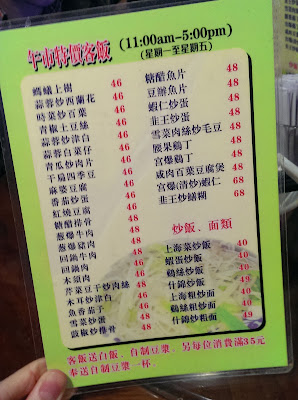 午市特價客飯 (11:00am-5:00pm)
(星期一至星期五)
螞蟻上樹 46
蒜蓉炒西蘭花 46
時菜炒百葉 46
青椒土豆絲 46
蒜蓉炒津白 46
蒜蓉白菜仔 46
青瓜炒肉片 46
干扁四季豆 46
麻婆豆腐 46
番茄炒蛋 46
紅燒豆腐 46
糖醋排骨 48
蔥爆牛肉 48
蔥爆豬肉 48
回鍋牛肉 48
回鍋肉 48
木須肉 48
芹菜豆干炒肉絲 48
木耳炒津白 48
魚香茄子 48
雪菜炒蛋 48
豉椒炒排骨 48
糖醋魚片 48
豆瓣魚片 48
蝦仁炒蛋 48
韭王炒蛋 48
雪菜肉絲炒毛豆 48
腰果鷄丁 48
宮爆鷄丁 48
咸肉百葉豆腐煲 48
宮爆(清炒)蝦仁 68
韭王炒鱔糊 68
炒飯、面類
上海菜炒飯 40
蝦蛋炒飯 40
鷄絲炒飯 40
什錦炒飯 49
上海粗炒面 40
鷄絲粗炒面 40
什錦炒粗面 49
客飯送白飯、自制豆漿、另每位消費滿35元
奉送自制豆漿一杯。